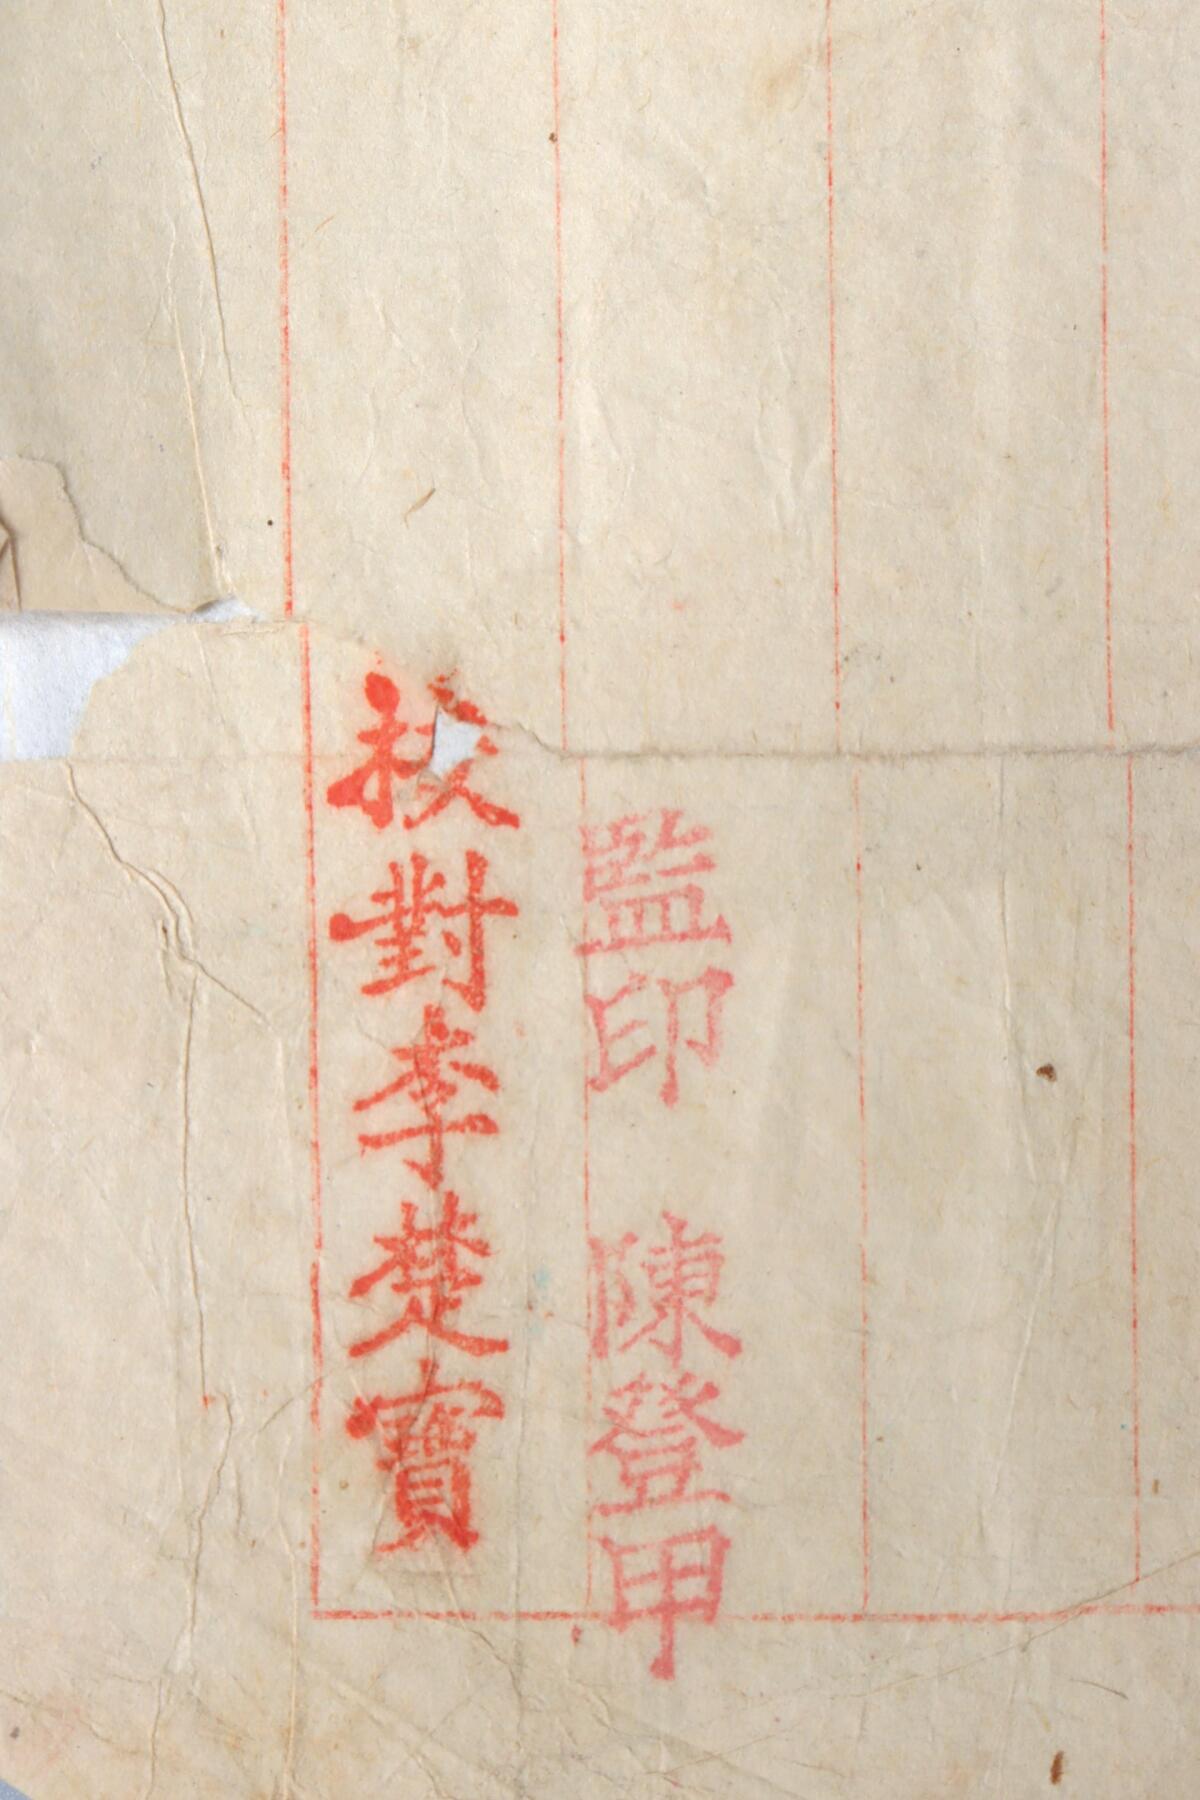 監印 陳登甲
校對李楚寶